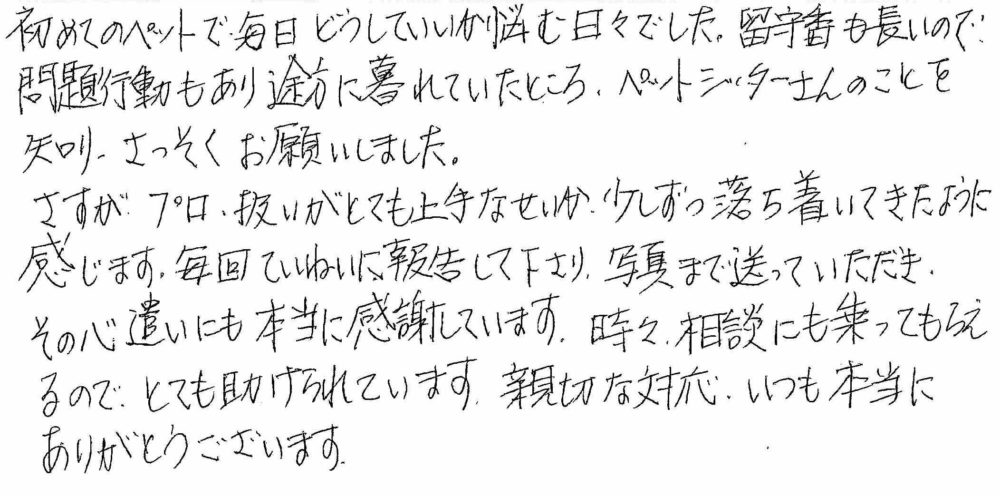 初めてのペットで毎日どうしていいか悩む日々でした。留守番も長いので、
問題行動もあり途方に暮れていたところ、ペットシッターさんのことを
知り、さっそくお願いしました。
さすが、プロ、扱いがとても上手なせいか、少しずつ落ち着いてきたように
感じます。毎回ていねいに報告して下さり、写真まで送っていただき、
その心遣いにも本当に感謝しています。時々、相談にも乗ってもらえ
るので、とても助けられています。親切な対応、いつも本当に
ありがとうございます。